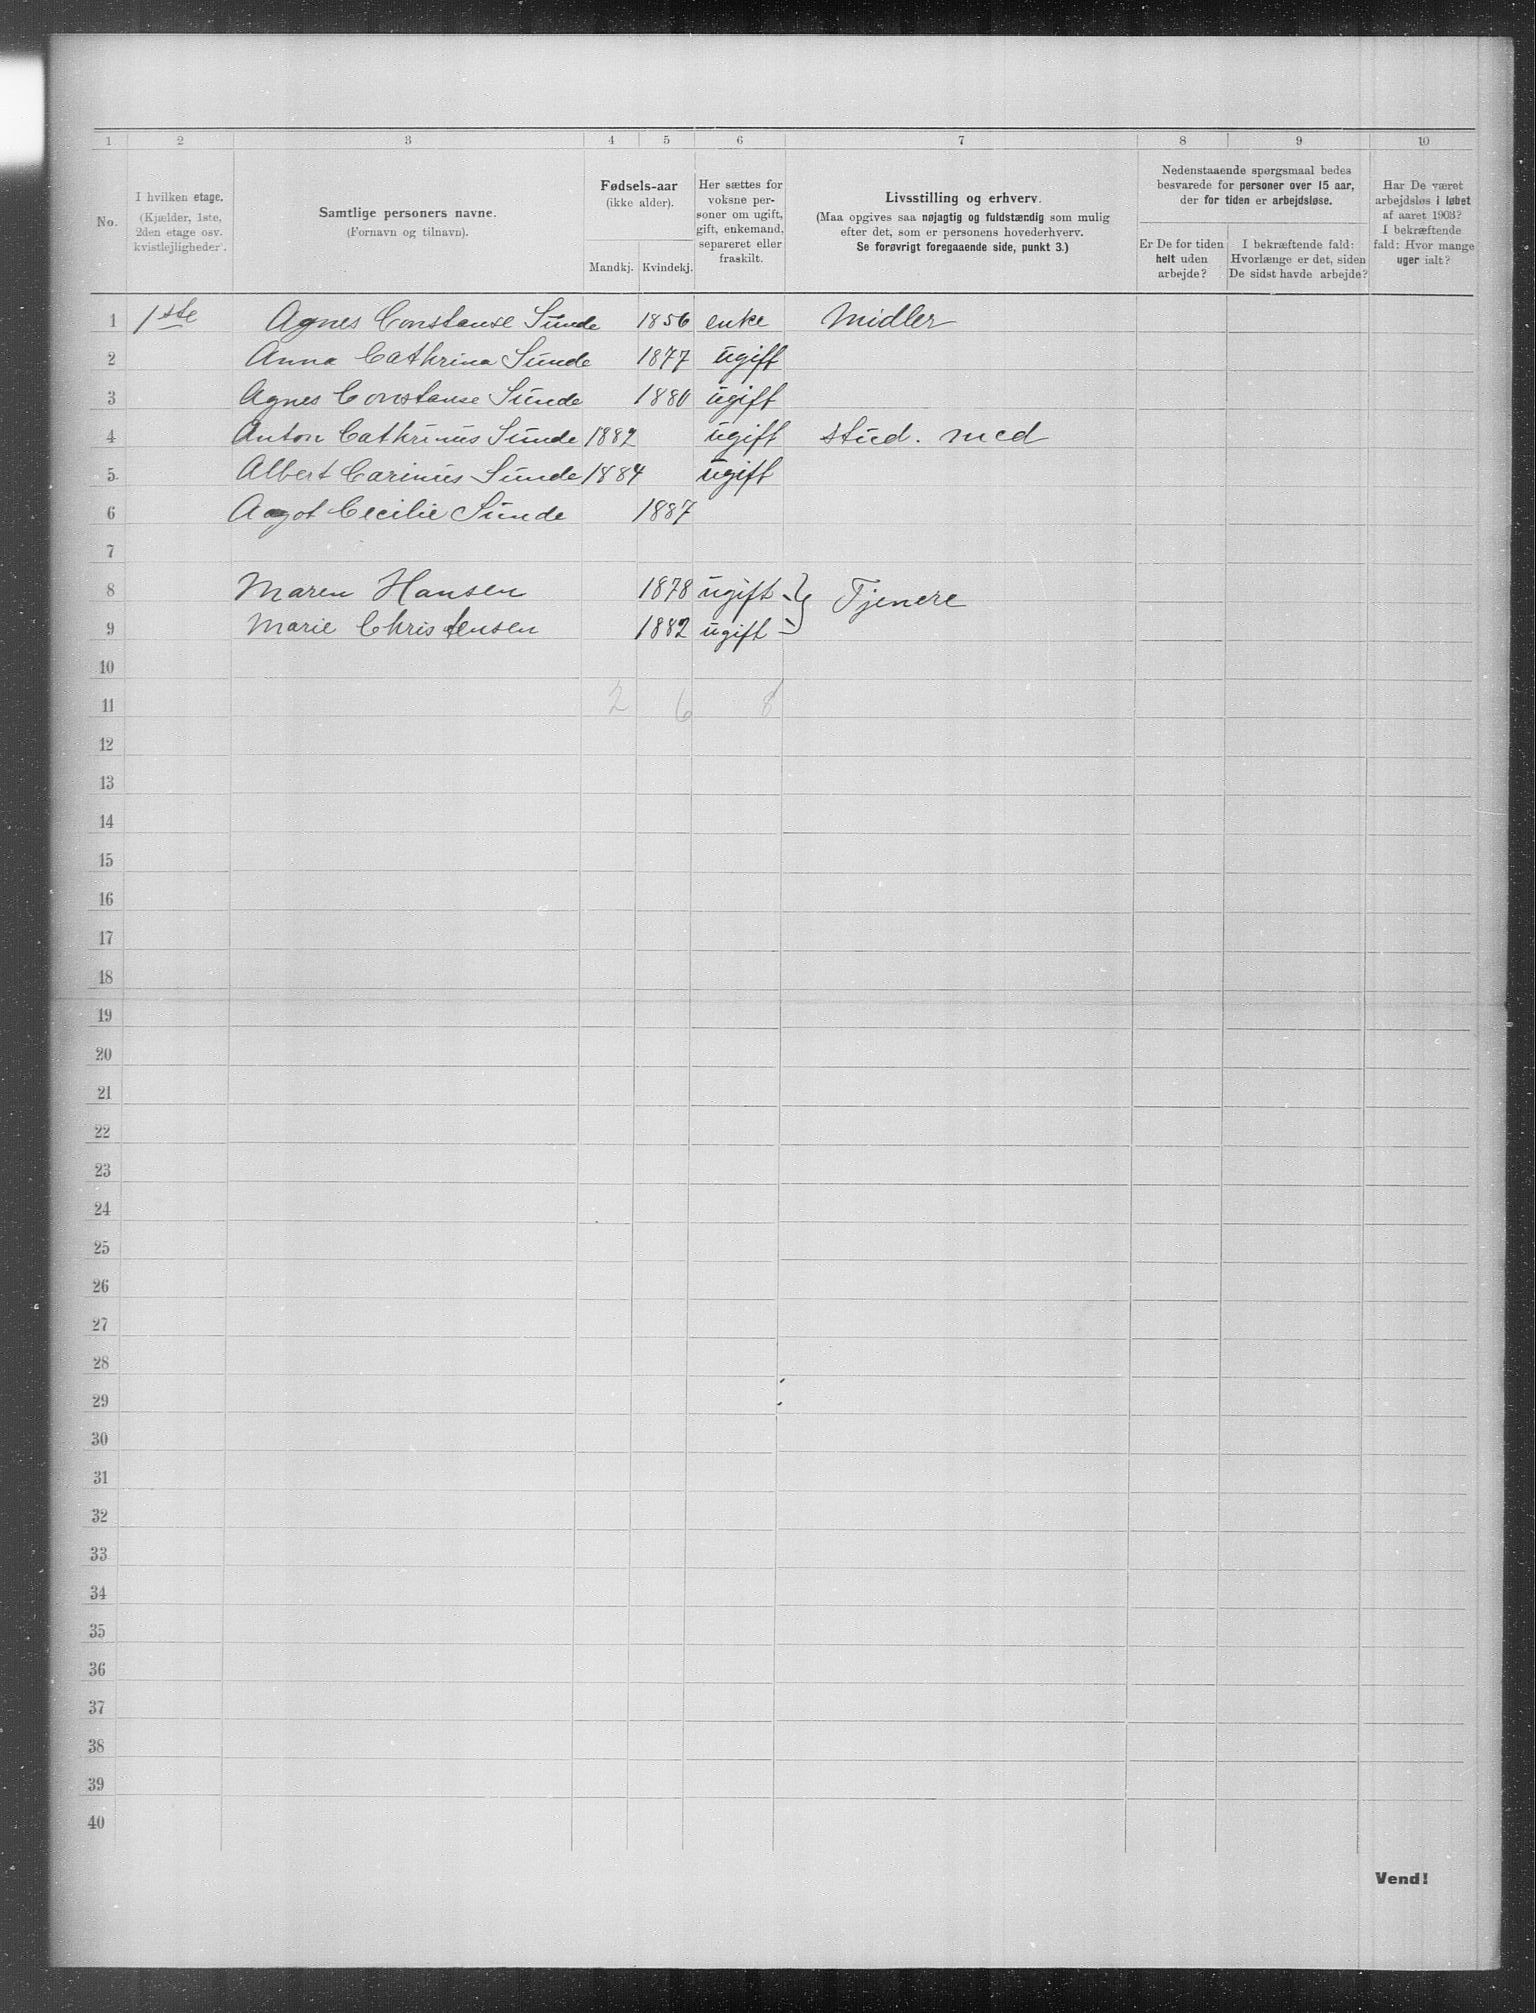 1 2 3 4 5 6 7 8 9 10
No.
I hvilken etage.
(Kjælder, 1ste,
2den etage osv.
kvistlejligheder).
Samtlige personers navne.
(Fornavn og tilnavn).
Fødsels-aar
(ikke alder).
Mandkj. Kvindekj.
Her sættes for
voksne per-
soner om ugift,
gift, enkemand,
separeret eller
fraskilt.
Livsstilling og erhverv.
(Maa opgives saa nøjagtig og fuldstændig som mulig
efter det, som er personens hovederhverv.
Se forøvrigt foregaaende side, punkt 3.)
Nedenstaaende spørgsmaal bedes
besvarede for personer over 15 aar,
der for tiden er arbejdsløse.
Er De for tiden
helt uden
arbejde?
I bekræftende fald:
Hvorlænge er det, siden
De sidst havde arbejde?
Har De været
arbejdsløs i løbet
af aaret 1903?
I bekræftende
fald: Hvor mange
uger ialt?
1 1ste Agnes Constanse Sunde 1856 enke Midler
2 Anna Cathrina Sunde 1877 ugift
3 Agnes Constanse Sunde 1880 ugift
4 Anton Cathrinus Sunde 1882 ugift stud. med
5 Albert Carinius Sunde 1884 ugift
6 Aagot Cecilie Sunde 1887
7
8 Maren Hansen 1878 ugift } Tjenere
9 Marie Christensen 1882 ugift
10
11 2 6 8
12
13
14
15
16
17
18
19
20
21
22
23
24
25
26
27
28
29
30
31
32
33
34
35
36
37
38
39
40
Vend!